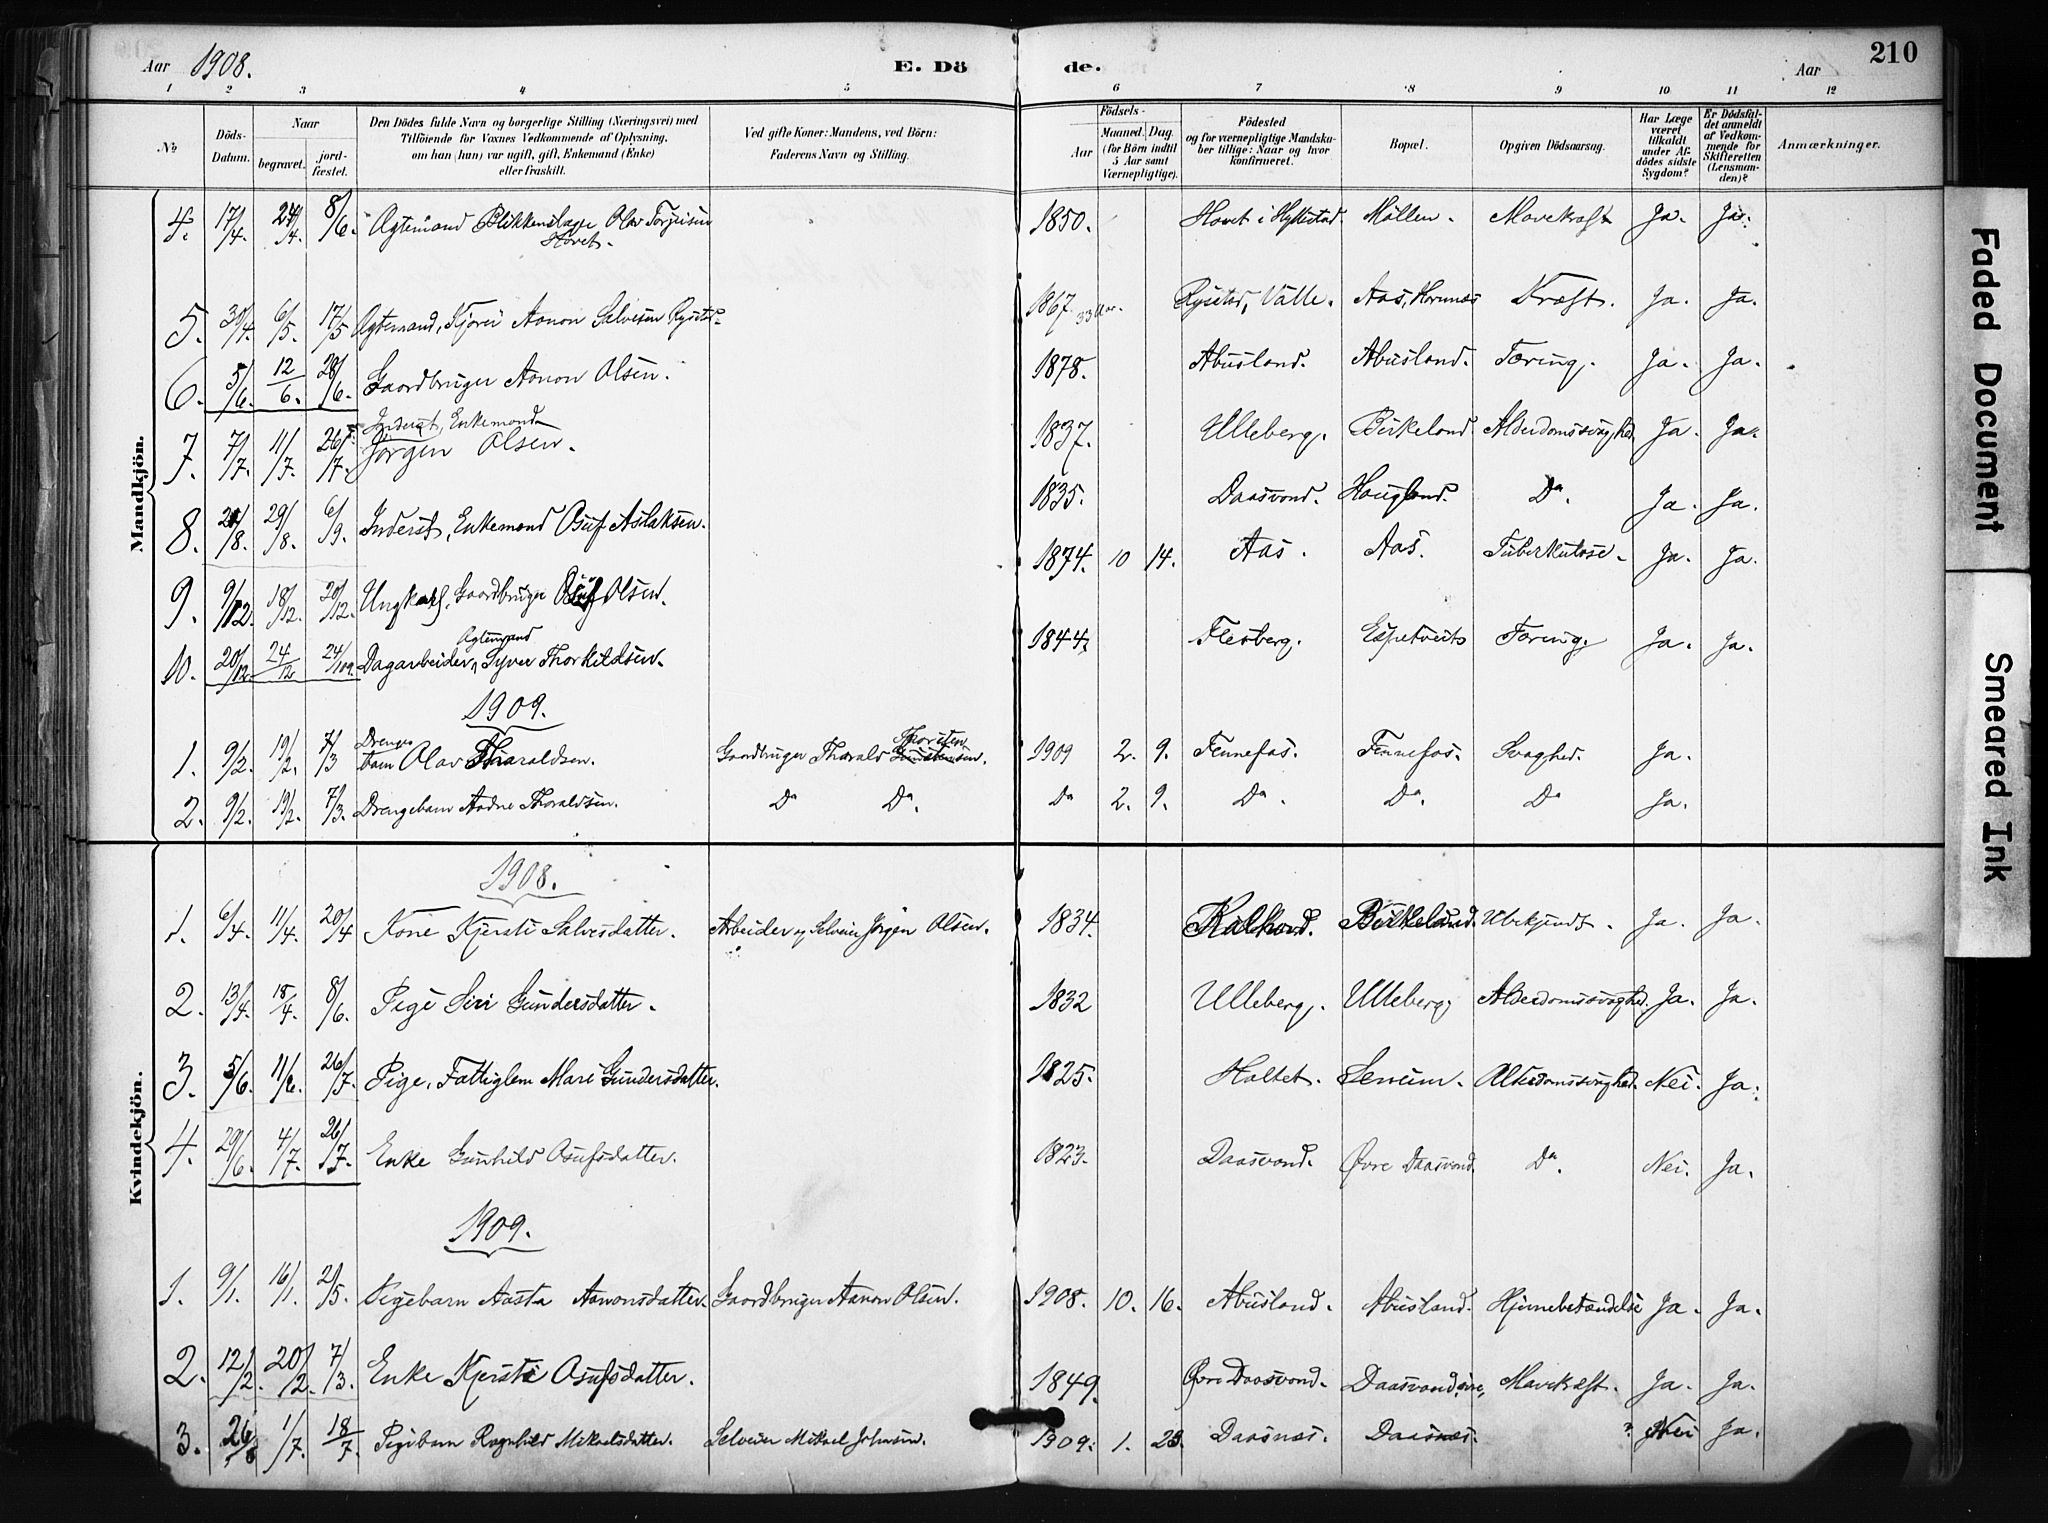 Aar 1908. E. Dö de. Aar 210
1 2 3 4 5 6 7 8 9 10 11 12
No. Döds-Datum. Naar begravet. jord-fæstet. Den Dödes fulde Navn og borgerlige Stilling (Næringsvei) med Tilföiende for Voxnes Vedkommende af Oplysning, om han (hun) var ugift, gift, Enkemand (Enke) eller fraskilt. Ved gifte Koner: Mandens, ved Börn: Faderens Navn og Stilling. Födsels- Aar Maaned. Dag. (for Börn indtil 5 Aar samt Værnepligtige). Födested og for værnepligtige Mandskaber tillige: Naar og hvor konfirmeret. Bopæl. Opgiven Dödsaarsag. Har Læge været tilkaldt under Afdödes sidste Sygdom? Er Dödsfaldet anmeldt af Vedkommende for Skifteretten (Lensmanden)? Anmærkninger.
Mandkjön.
4. 17/4. 24/4. 8/6. Ægtemand Blikkenslager Olav Torjusen Hovet. 1850. Hovet i Hyllestad. Möllen. Mavekræft Ja. Ja.
5. 30/4. 6/5. 17/5 Ægtemand, Aanon Salvesen Rysstad. 1867. Rysstad, Valle. Aas, Hornnes Kræft. Ja. Ja.
6. 5/6. 12/6. 28/6. Gaardbruger Aanon Olsen. 1878. Abusland. Abusland. Tæring. Ja. Ja.
7. 7/7. 11/7. 26/7. Inderst, Enkemand Jörgen Olsen. 1837. Ulleberg. Birkeland. Alderdomssvaghed. Ja. Ja.
8. 21/8. 29/8. 6/9. Inderst, Enkemand Osuf Aslaksen. 1835. Daasvand. Haugland. Do. Ja. Ja.
9. 9/12. 18/12. 20/12. Ungkarl, Gaardbruger Osuf Olsen. 1874. 10 14. Aas. Aas. Tuberkulose. Ja. Ja.
10. 20/12. 24/12 24/1 09. Dagarbeider, Ægtemand Syver Thorkildsen. 1844. Flesberg. Espetveit Tæring. Ja. Ja.
1909.
1. 9/2. 19/2. 7/3 Drengebarn Olav Tharaldsen. Gaardbruger Tharald Thorsten 1909 2. 9. Fennefos. Fennefos. Svaghed. Ja.
2. 9/2. 19/2. 7/3. Drengebarn Aadne Tharaldsen. Do Do. Do 2. 9. Do. Do. Do Ja.
Kvindekjön.
1908.
1. 6/4. 11/4. 20/4 Kone Kjersti Salvesdatter. Arbeider og Selveier Jörgen Olsen. 1834. Birkeland. Ubekjendt. Ja. Ja.
2. 13/4. 18/4. 8/6. Pige Siri Gundersdatter. 1832 Ulleberg. Ulleberg, Alderdomssvaghed. Ja. Ja.
3. 5/6. 11/6. 26/7. Pige, Fattiglem Mari Gundersdatter. 1825. Haltet. Senum. Alderdomssvaghed. Nei. Ja.
4. 29/6. 4/7. 26/7. Enke Gunhild Osufsdatter. 1823. Daasvand. Övre Daasvand. Do. Nei. Ja.
1909.
1. 9/1. 16/1. 2/5. Pigebarn Aasta Aanonsdatter. Gaardbruger Aanon Olsen. 1908. 10. 16. Abusland. Abusland. Hjernebetændelse Ja. Ja.
2. 12/2. 20/2. 7/3. Enke Kjersti Osufsdatter. 1849. Övre Daasvand. Daasvand, övre, Mavekræft. Ja. Ja.
3. 26/6 1/7. 18/7. Pigebarn Ragnhild Mikaelsdatter. Selveier Mikael Johnsen. 1909. 1. 23. Daasnes. Daasnes. ? Nei Ja.
Faded Document
Smeared Ink